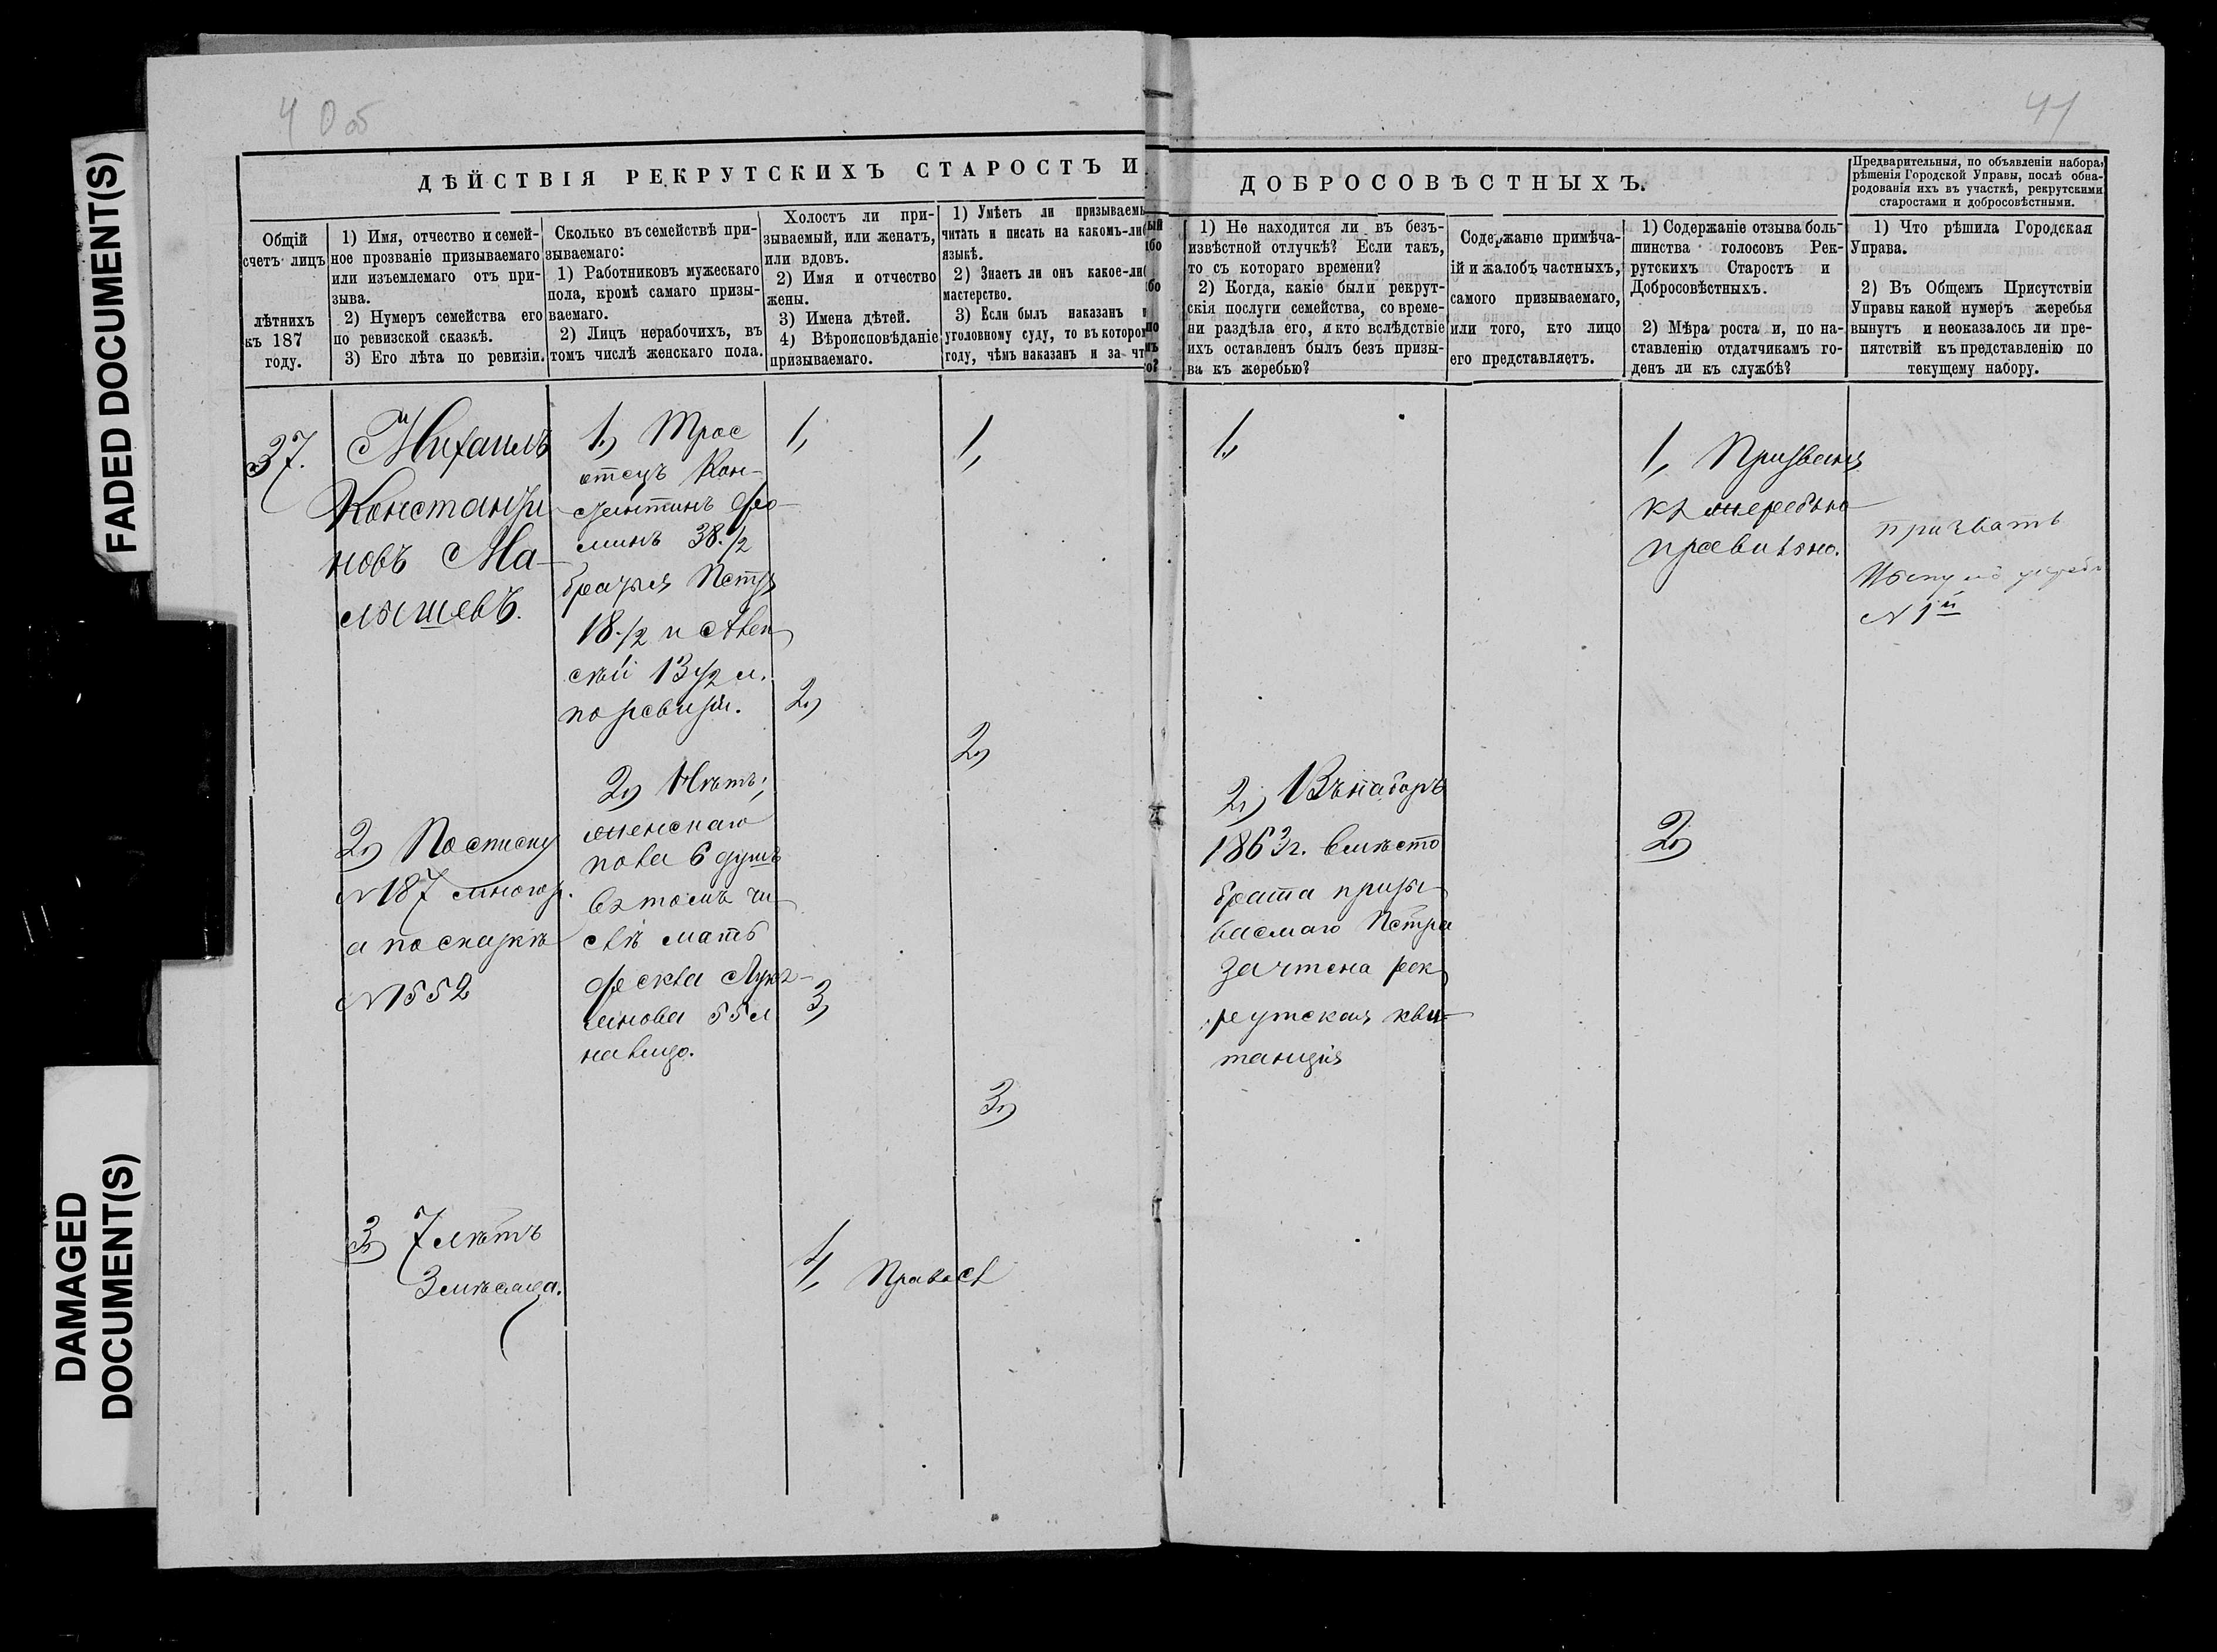 FADED DOCUMENT(S)
DAMAGED
DOCUMENT(S)
40 об
41
ДѢЙСТВІЯ РЕКРУТСКИХЪ СТАРОСТЪ И
ДОБРОСОВѢСТНЫХЪ.
Предварительныя, по объявленіи набора,
рѣшенія Городской Управы, послѣ обна-
родованія ихъ въ участкѣ, рекрутскими
старостами и добросовѣстными.
Общій
счетъ лицъ
лѣтнихъ
къ 187
году.
1) Имя, отчество и семей-
ное прозваніе призываемаго
или изъемлемаго отъ при-
зыва.
2) Нумеръ семейства его
по ревизской сказкѣ.
3) Его лѣта по ревизіи.
Сколько въ семействѣ при-
зываемаго:
1) Работниковъ мужескаго
пола, кромѣ самаго призы-
ваемаго.
2) Лицъ нерабочихъ, въ
томъ числѣ женскаго пола.
Холостъ ли при-
зываемый, или женатъ,
или вдовъ.
2) Имя и отчество
жены.
3) Имена дѣтей.
4) Вѣроисповѣданіе
призываемаго.
1) Умѣетъ ли призываемый
читать и писать на какомъ-либо
языкѣ.
2) Знаетъ ли онъ какое-либо
мастерство.
3) Если былъ наказанъ по
уголовному суду, то въ которомъ
году, чѣмъ наказанъ и за что?
1) Не находится ли въ безъ-
извѣстной отлучкѣ? Если такъ,
то съ котораго времени?
2) Когда, какіе были рекрут-
скія послуги семейства, со време-
ни раздѣла его, и кто вслѣдствіе
ихъ оставленъ былъ безъ призы-
ва къ жеребью?
Содержаніе примѣча-
ій и жалобъ частныхъ,
самого призываемаго,
или того, кто лицо
его представляетъ.
1) Содержаніе отзыва боль-
шинства голосовъ Рек-
рутскихъ Старостъ и
Добросовѣстныхъ.
2) Мѣра роста и, по на-
ставленію отдатчикамъ го-
денъ ли къ службѣ?
1) Что рѣшила Городская
Управа.
2) Въ Общемъ Присутствіи
Управы какой нумеръ жеребья
вынутъ и неоказалось ли пре-
пятствій къ представленію по
текущему набору.
37.
Михаилъ
Константи
новъ Ма-
лышевъ.
2) По списку
№187 многор.
а по сказкѣ
№ 552
3) 7 лѣтъ
3 мѣсяца.
1) Трое
отецъ Кон-
стантинъ Фо-
минъ 38.1/2
братья Петръ
18.1/2 и Алек
сѣй 13 1/2 л.
по ревизіи.
2) Нѣтъ;
женскаго
пола 6 душъ
въ томъ чи
слѣ мать
Фекла
55 л
на лицо.
1,
2)
3)
4, Правосл
1,
2)
3)
1,
2) Въ наборъ
1863 г. вмѣсто
брата призы
ваемаго Петра
зачтена рек
рутская кви-
танція
1, Призванъ
къ жеребью
правильно.
2)
призвать
Вынулъ жребій
№ 1й